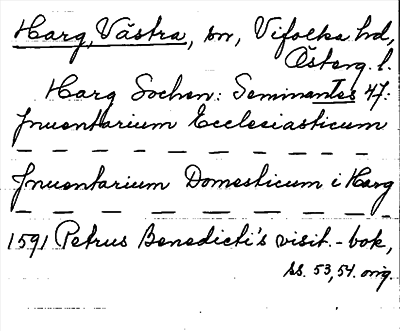 Harg, Västra, sn, Vifolka hd,
Österg. l.
Harg Sochen: Seminantes 47:
Jnuentarium Ecclesiasticum
— — — — — — — — — —
Jnuentarium Domesticum i Harg
— — — — — — — — — —
1591 Petrus Benedicti's visit.-bok,
ss. 53, 54. orig.